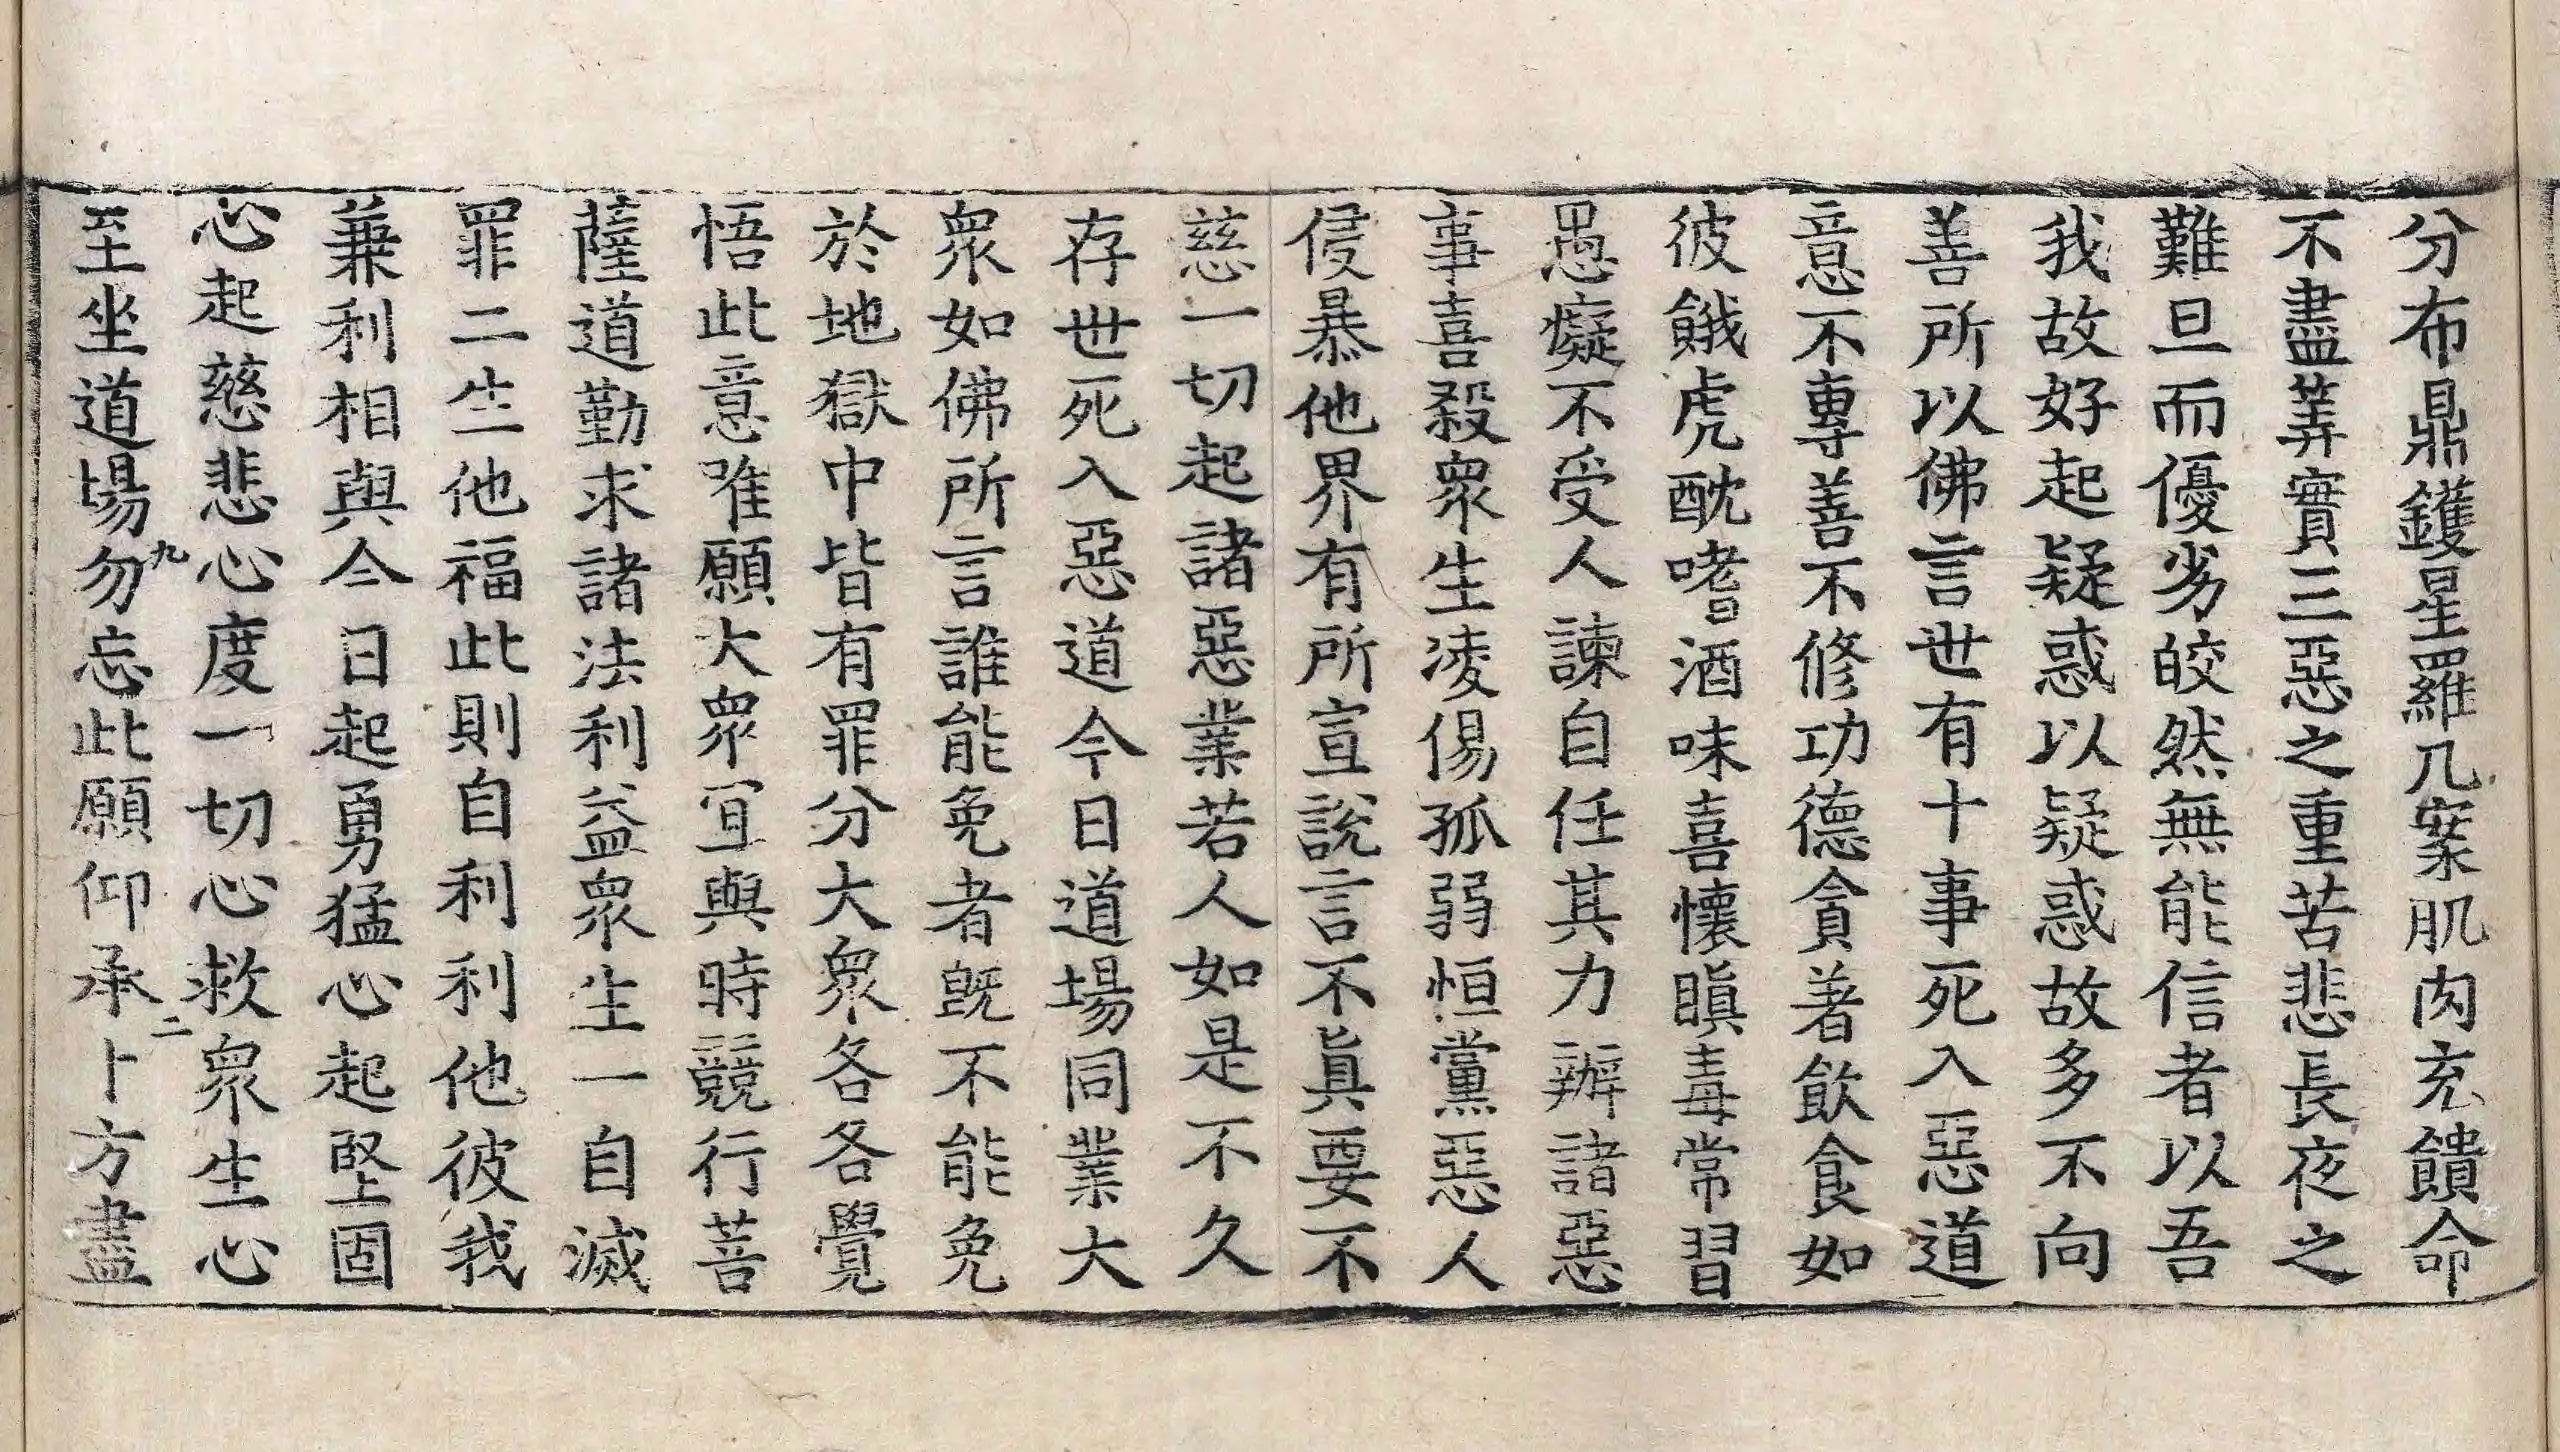 分布鼎鑊星羅几案肌肉充饋命
不盡筭實三惡之重苦悲長夜之
難旦而優劣皎然無能信者以吾
我故好起疑惑以疑惑故多不向
善所以佛言世有十事死入惡道
意不專善不修功德貪著飲食如
彼餓虎酖嗜酒味喜懷瞋毒常習
愚癡不受人諫自任其力辦諸惡
事喜殺衆生凌傷孤弱恒黨惡人
侵暴他界有所宣說言不眞要不
慈一切起諸惡業若人如是不久
存世死入惡道今日道場同業大
衆如佛所言誰能免者旣不能免
於地獄中皆有罪分大衆各各覺
悟此意唯願大衆宜與時競行菩
薩道勤求諸法利益衆生一自滅
罪二生他福此則自利利他彼我
兼利相與今日起勇猛心起堅固
心起慈悲心度一切心救衆生心
九 二
至坐道場勿忘此願仰承十方盡